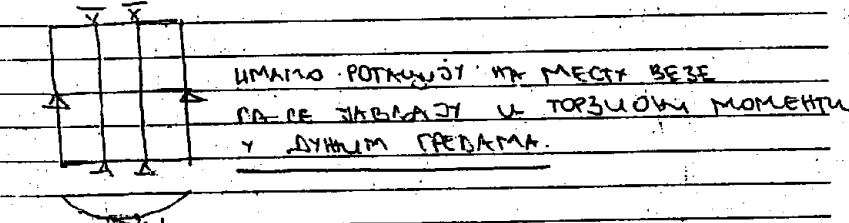 ИМАМО РОТАЦИЈУ НА МЕСТУ ВЕЗЕ
ПА СЕ ЈАВЉАЈУ И ТОРЗИОНИ МОМЕНТИ
У ДУЖИМ ГРЕДАМА.